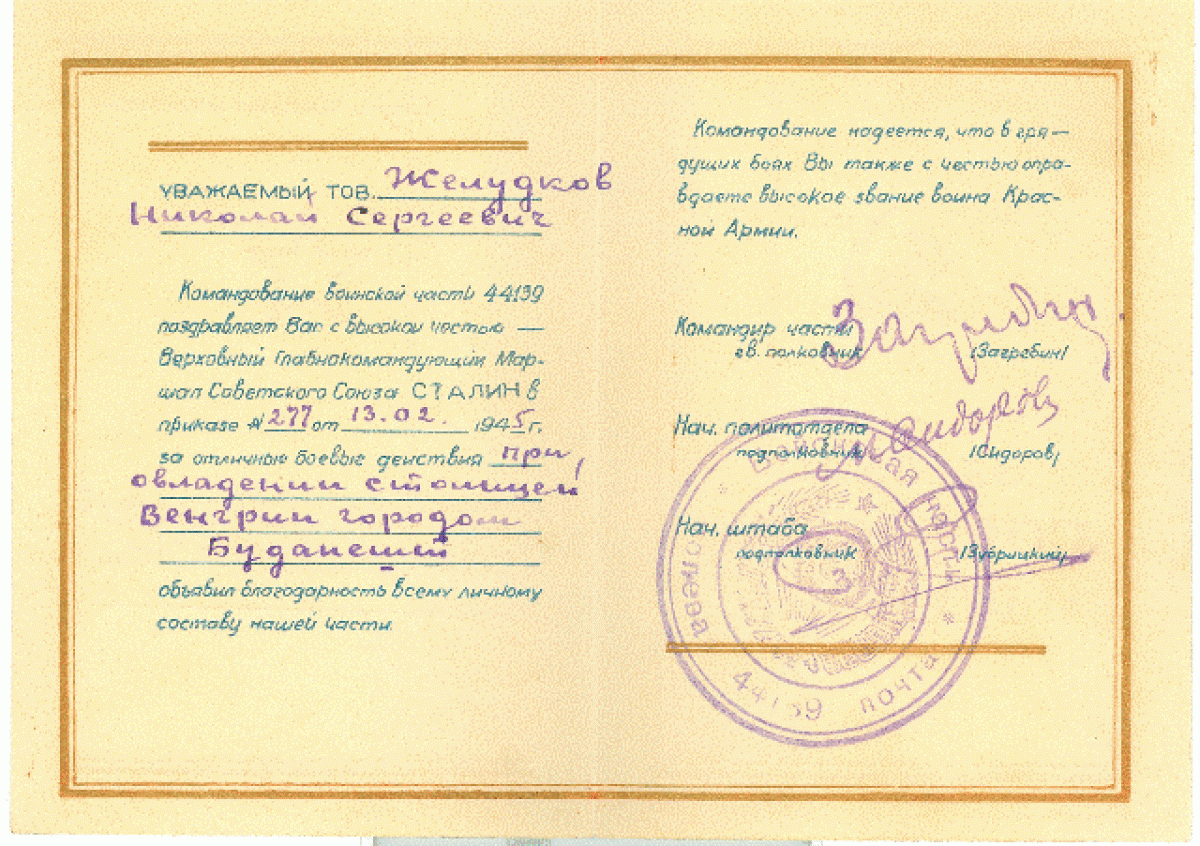 УВАЖАЕМЫЙ ТОВ. Желудков
Николай Сергеевич
Командование воинской части 44139
поздравляет Вас с высокой честью —
Верховный Главнокомандующий Мар-
шал Советского Союза СТАЛИН в
приказе № 277 от 13.02. 1945 г.
за отличные боевые действия при
овладении столицей
Венгрии городом
Будапешт
объявил благодарность всему личному
составу нашей части.
Командование надеется, что в гря-
дущих боях Вы также с честью опра-
вдаете высокое звание воина Крас-
ной Армии.
Командир части Загребин
гв. полковник /Загребин/
Нач. политотдела Сидоров
подполковник /Сидоров/
Нач. штаба
подполковник /Зубрицкий/
Войсковая часть
полевая почта 44139
3